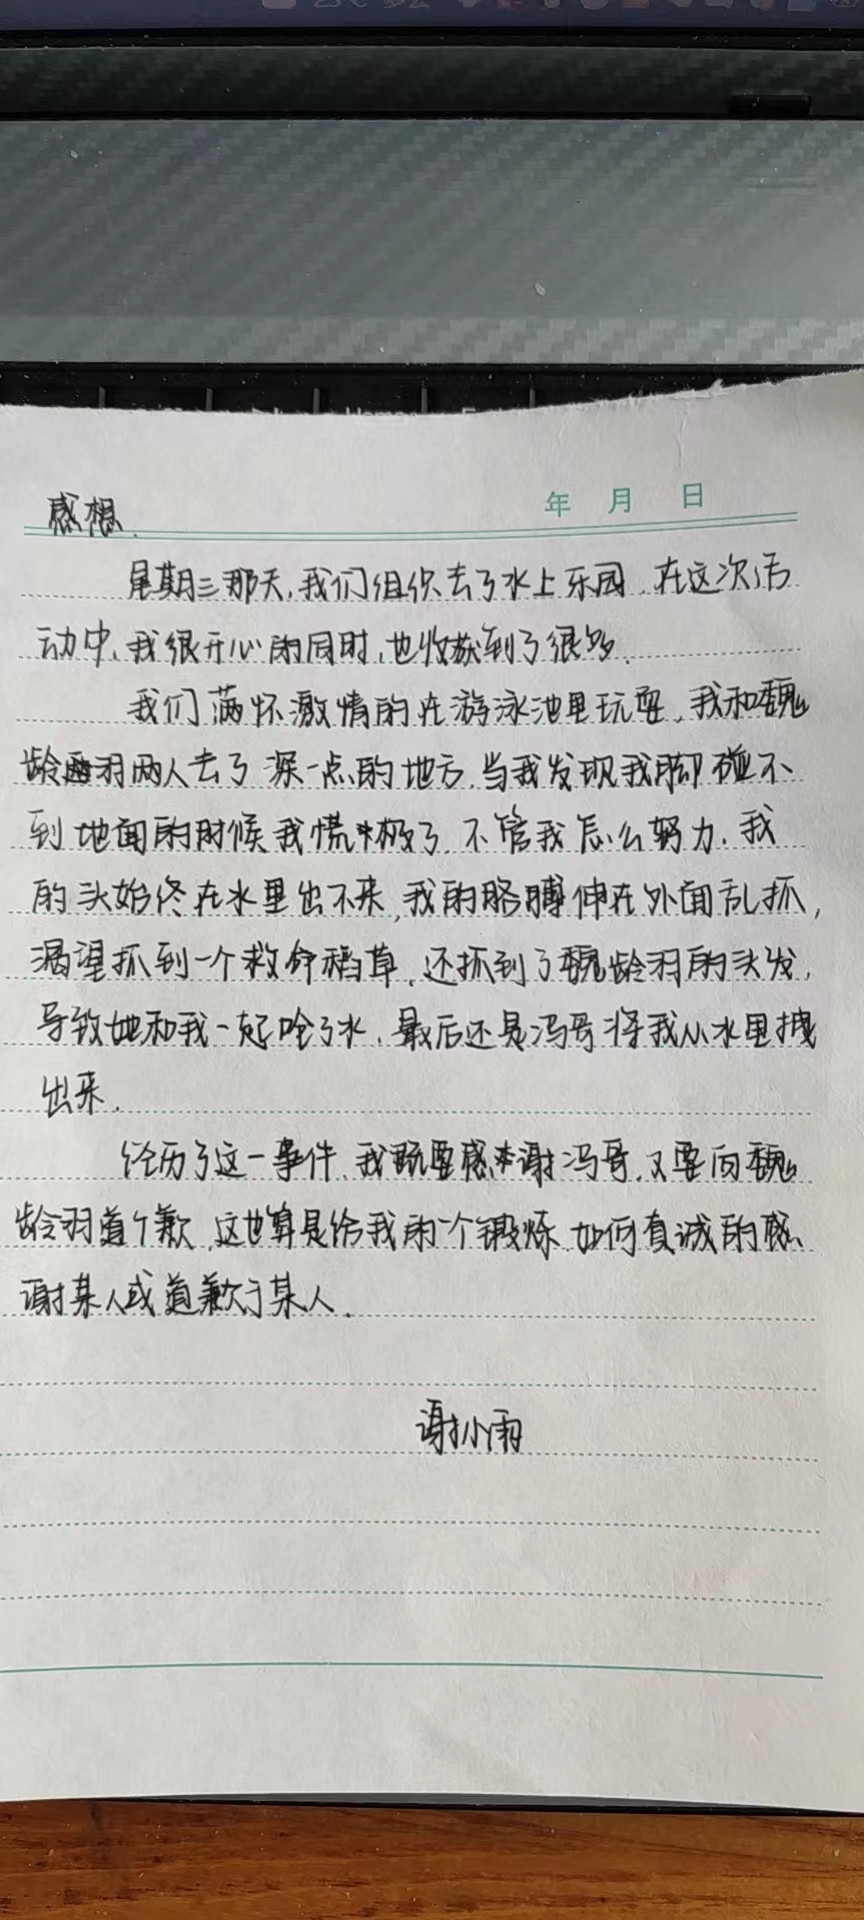 年 月 日
感想.
星期三那天,我们组织去了水上乐园.在这次活
动中,我很开心的同时,也收获到了很多.
我们满怀激情的在游泳池里玩耍,我和魏
龄羽两人去了深一点的地方.当我发现我脚碰不
到地面的时候我慌极了.不管我怎么努力.我
的头始终在水里出不来,我的胳膊伸在外面乱抓,
渴望抓到一个救命稻草.还抓到了魏龄羽的头发,
导致她和我一起呛了水.最后还是冯哥将我从水里拽
出来.
经历了这一事件.我既要感谢冯哥.又要向魏
龄羽道个歉.这也算是给我的一个锻炼.如何真诚的感
谢某人或道歉于某人.
谢小雨